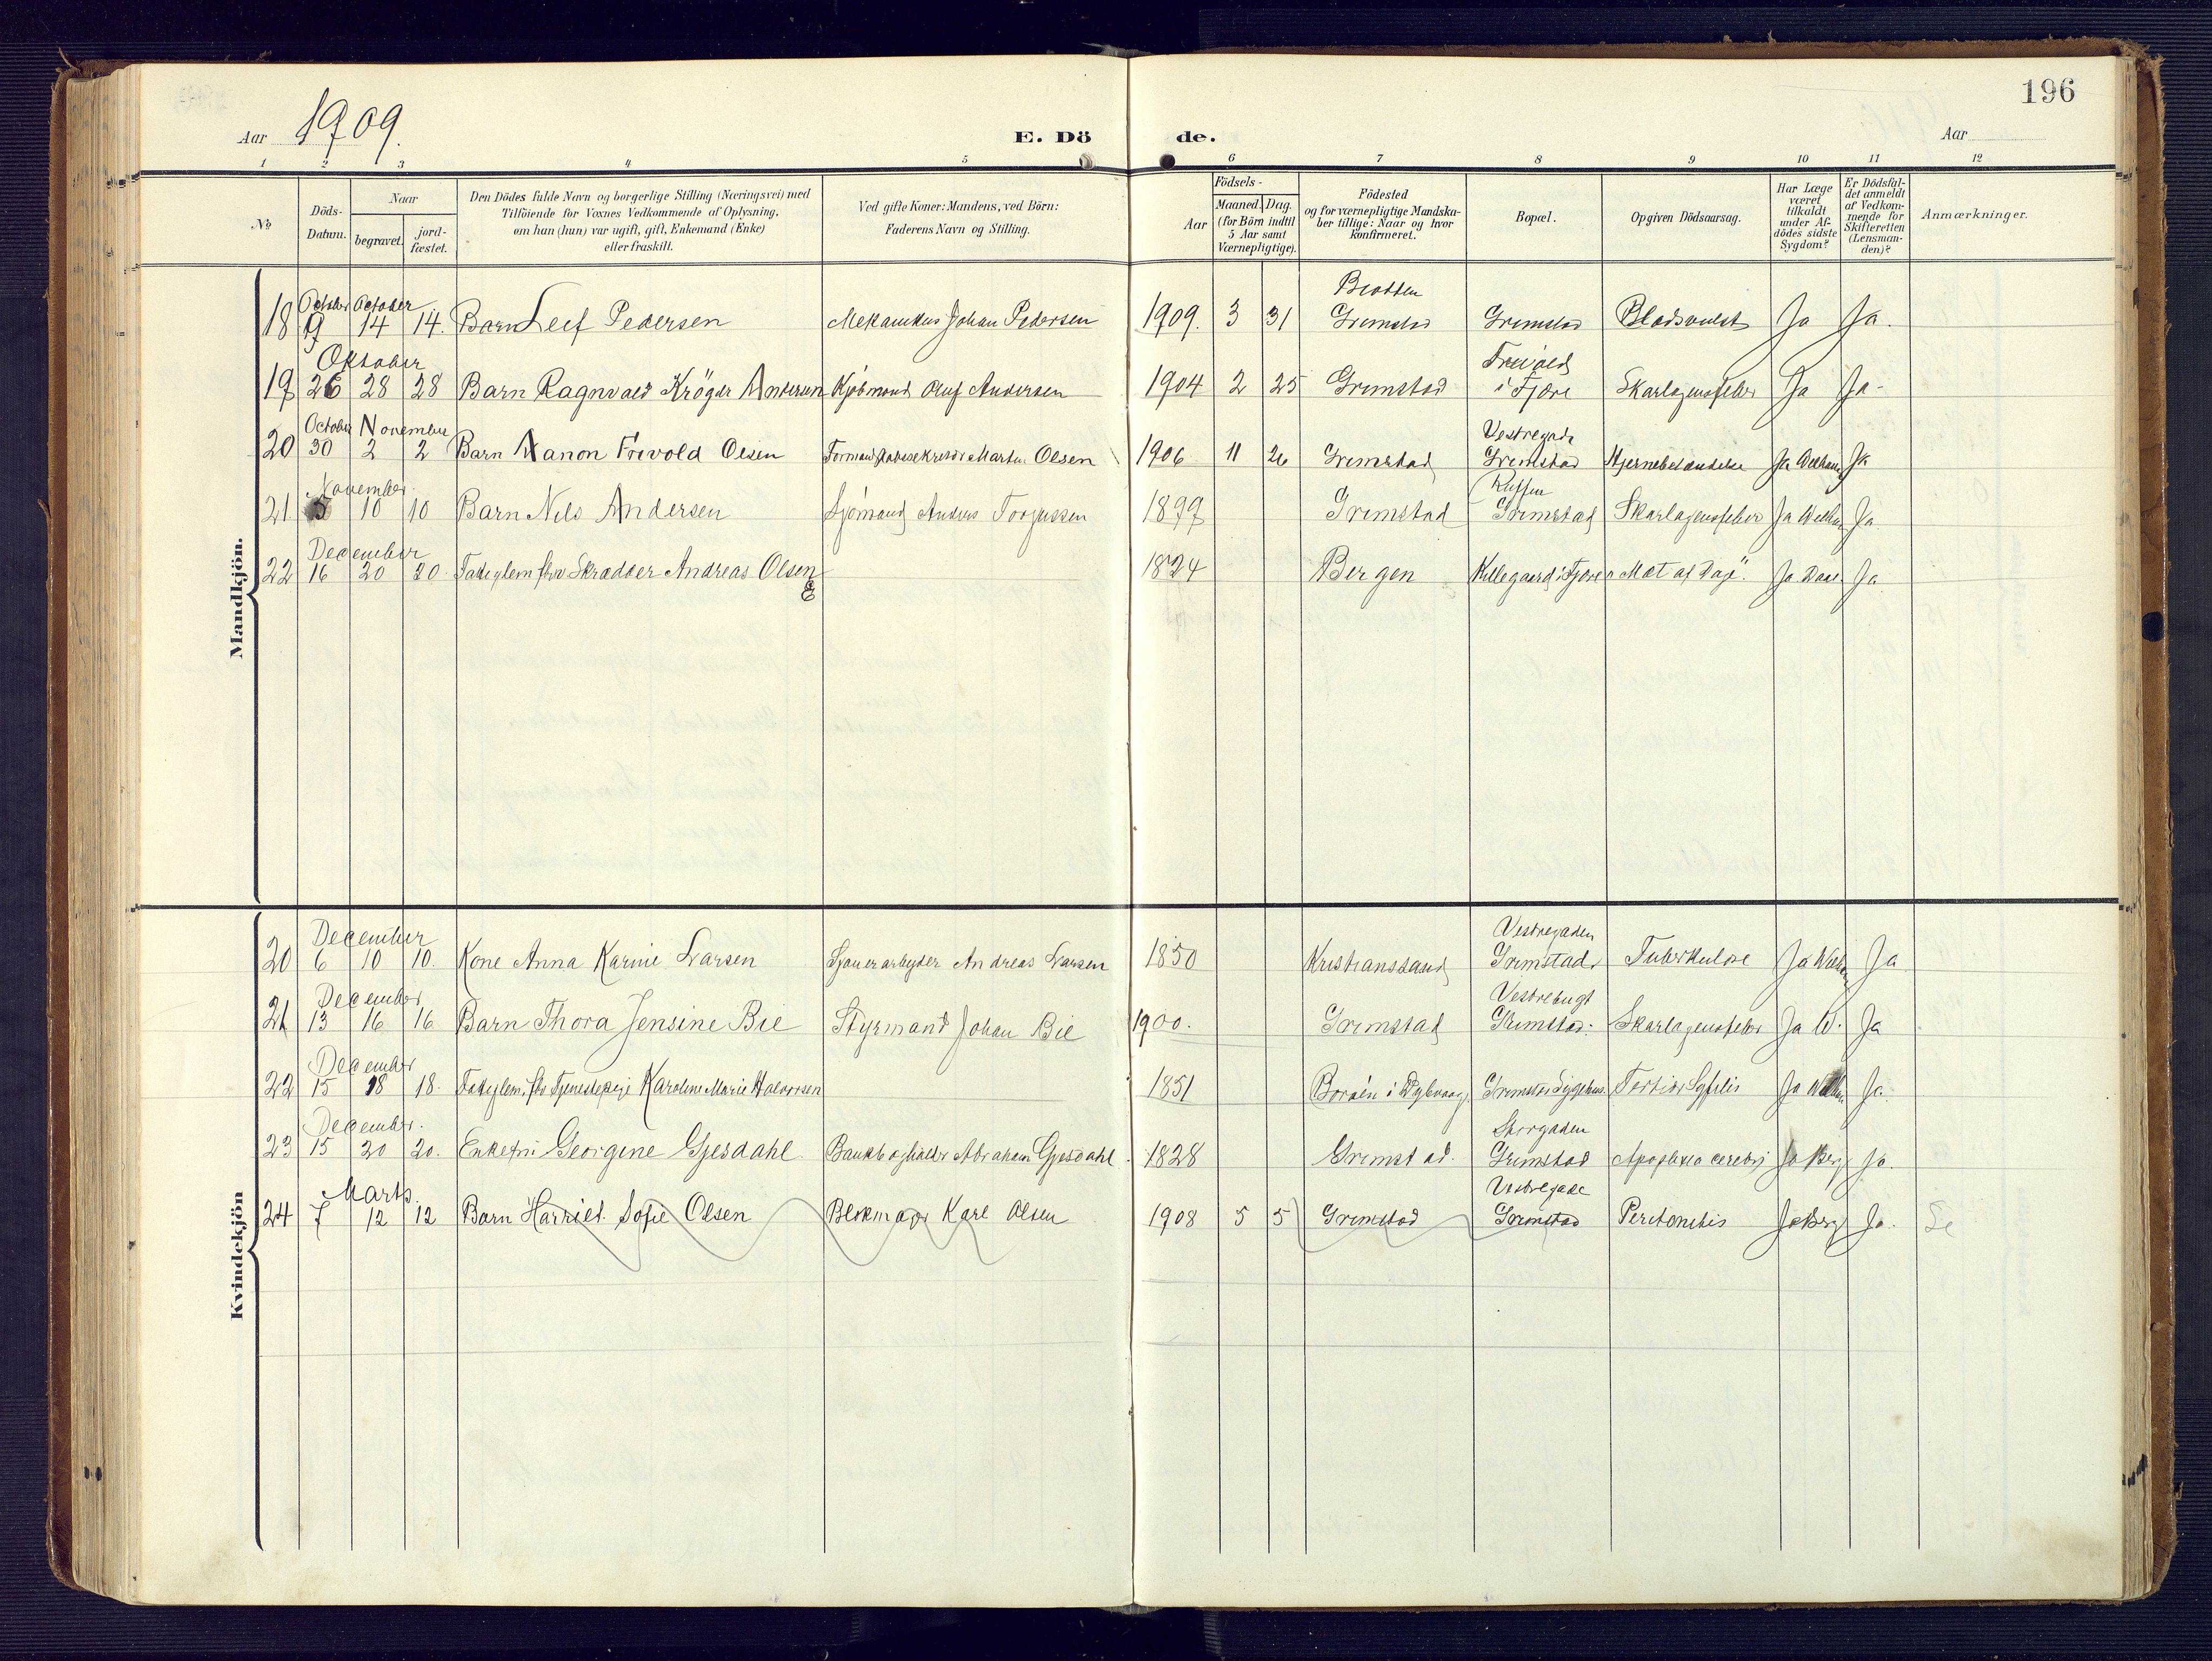 196
Aar 1909.
E. Dö de.
Aar
1 2 3 4 5 6 7 8 9 10 11 12
No
Döds-Datum.
Naar
begravet.
jord-fæstet.
Den Dödes fulde Navn og borgerlige Stilling (Næringsvei) med
Tilföiende for Voxnes Vedkommende af Oplysning,
om han (hun) var ugift, gift, Enkemand (Enke)
eller fraskilt.
Ved gifte Koner: Mandens, ved Börn:
Faderens Navn og Stilling.
Födsels-
Aar
Maaned. Dag.
(for Börn indtil
5 Aar samt
Værnepligtige).
Födested
og for værnepligtige Mandska-
ber tillige: Naar og hvor
konfirmeret.
Bopæl.
Opgiven Dödsaarsag.
Har Læge
været
tilkaldt
under Af-
dödes sidste
Sygdom?
Er Dödsfal-
det anmeldt
af Vedkom-
mende for
Skifteretten
(Lensman-
den)?
Anmærkninger.
Mandkjön.
October October Bratten
18 9 14 14. Barn Leif Pedersen Mekanikus Johan Pedersen 1909. 3 31 Grimstad Grimstad Blodsvulst Ja Ja.
Oktober Frivold
19 26 28 28 Barn Ragnvald Kröger Andersen Kjöbmand Oluf Andersen 1904 2 25 Grimstad i Fjære Skarlagensfeber Ja Ja-
October November Vestregade
20 30 2 2 Barn Manon Frivold Olsen Formand Martin Olsen 1906 11 26 Grimstad Grimstad Hjernebetændelse Ja Ja
November
21. 5 10 10 Barn Nils Andersen Sjömand Anders Torjussen 1899 Grimstad Grimstad Skarlagensfeber Ja Ja.
December
22 16 20 20. Fattiglem fhv Skrædder Andreas Olsen 1824 Bergen Killegaard i Fjære "Mæt af Dage". Ja Ja.
Kvindekjön
December Vestregaden
20 6 10 10. Kone Anna Karine Larsen Sjauerarbeider Andreas Larsen 1850 Kristianssand Grimstad. Tuberkulose Ja Ja
December Vestrebugt
21 13 16 16 Barn Thora Jensine Bie Styrmand Johan Bie 1900. Grimstad Grimstad. Skarlagensfeber Ja W. Ja
December
22 15 18 18. Fattiglem, fhv Tjenestepige Karoline Marie Halvorsen 1851 Boröen i Dybvaag Grimstad Sygehus. Tertiær Syfilis Ja Ja.
December. Storgaden
23 15 20 20. Enkefru Georgine Gjesdahl. Bankbogholder Abraham Gjesdahl. 1828 Grimstad. Grimstad Apoplexia cerebri Ja Berg Ja.
Marts. Vestregade
24 7 12 12 Barn Harriet Sofie Olsen Blikmager Karl Olsen 1908 5 5 Grimstad Grimstad Peritonitis Ja Berg Ja. Se